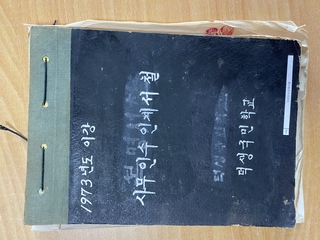 1973년도 이강
사무 인수 인계서 철
덕생국민학교